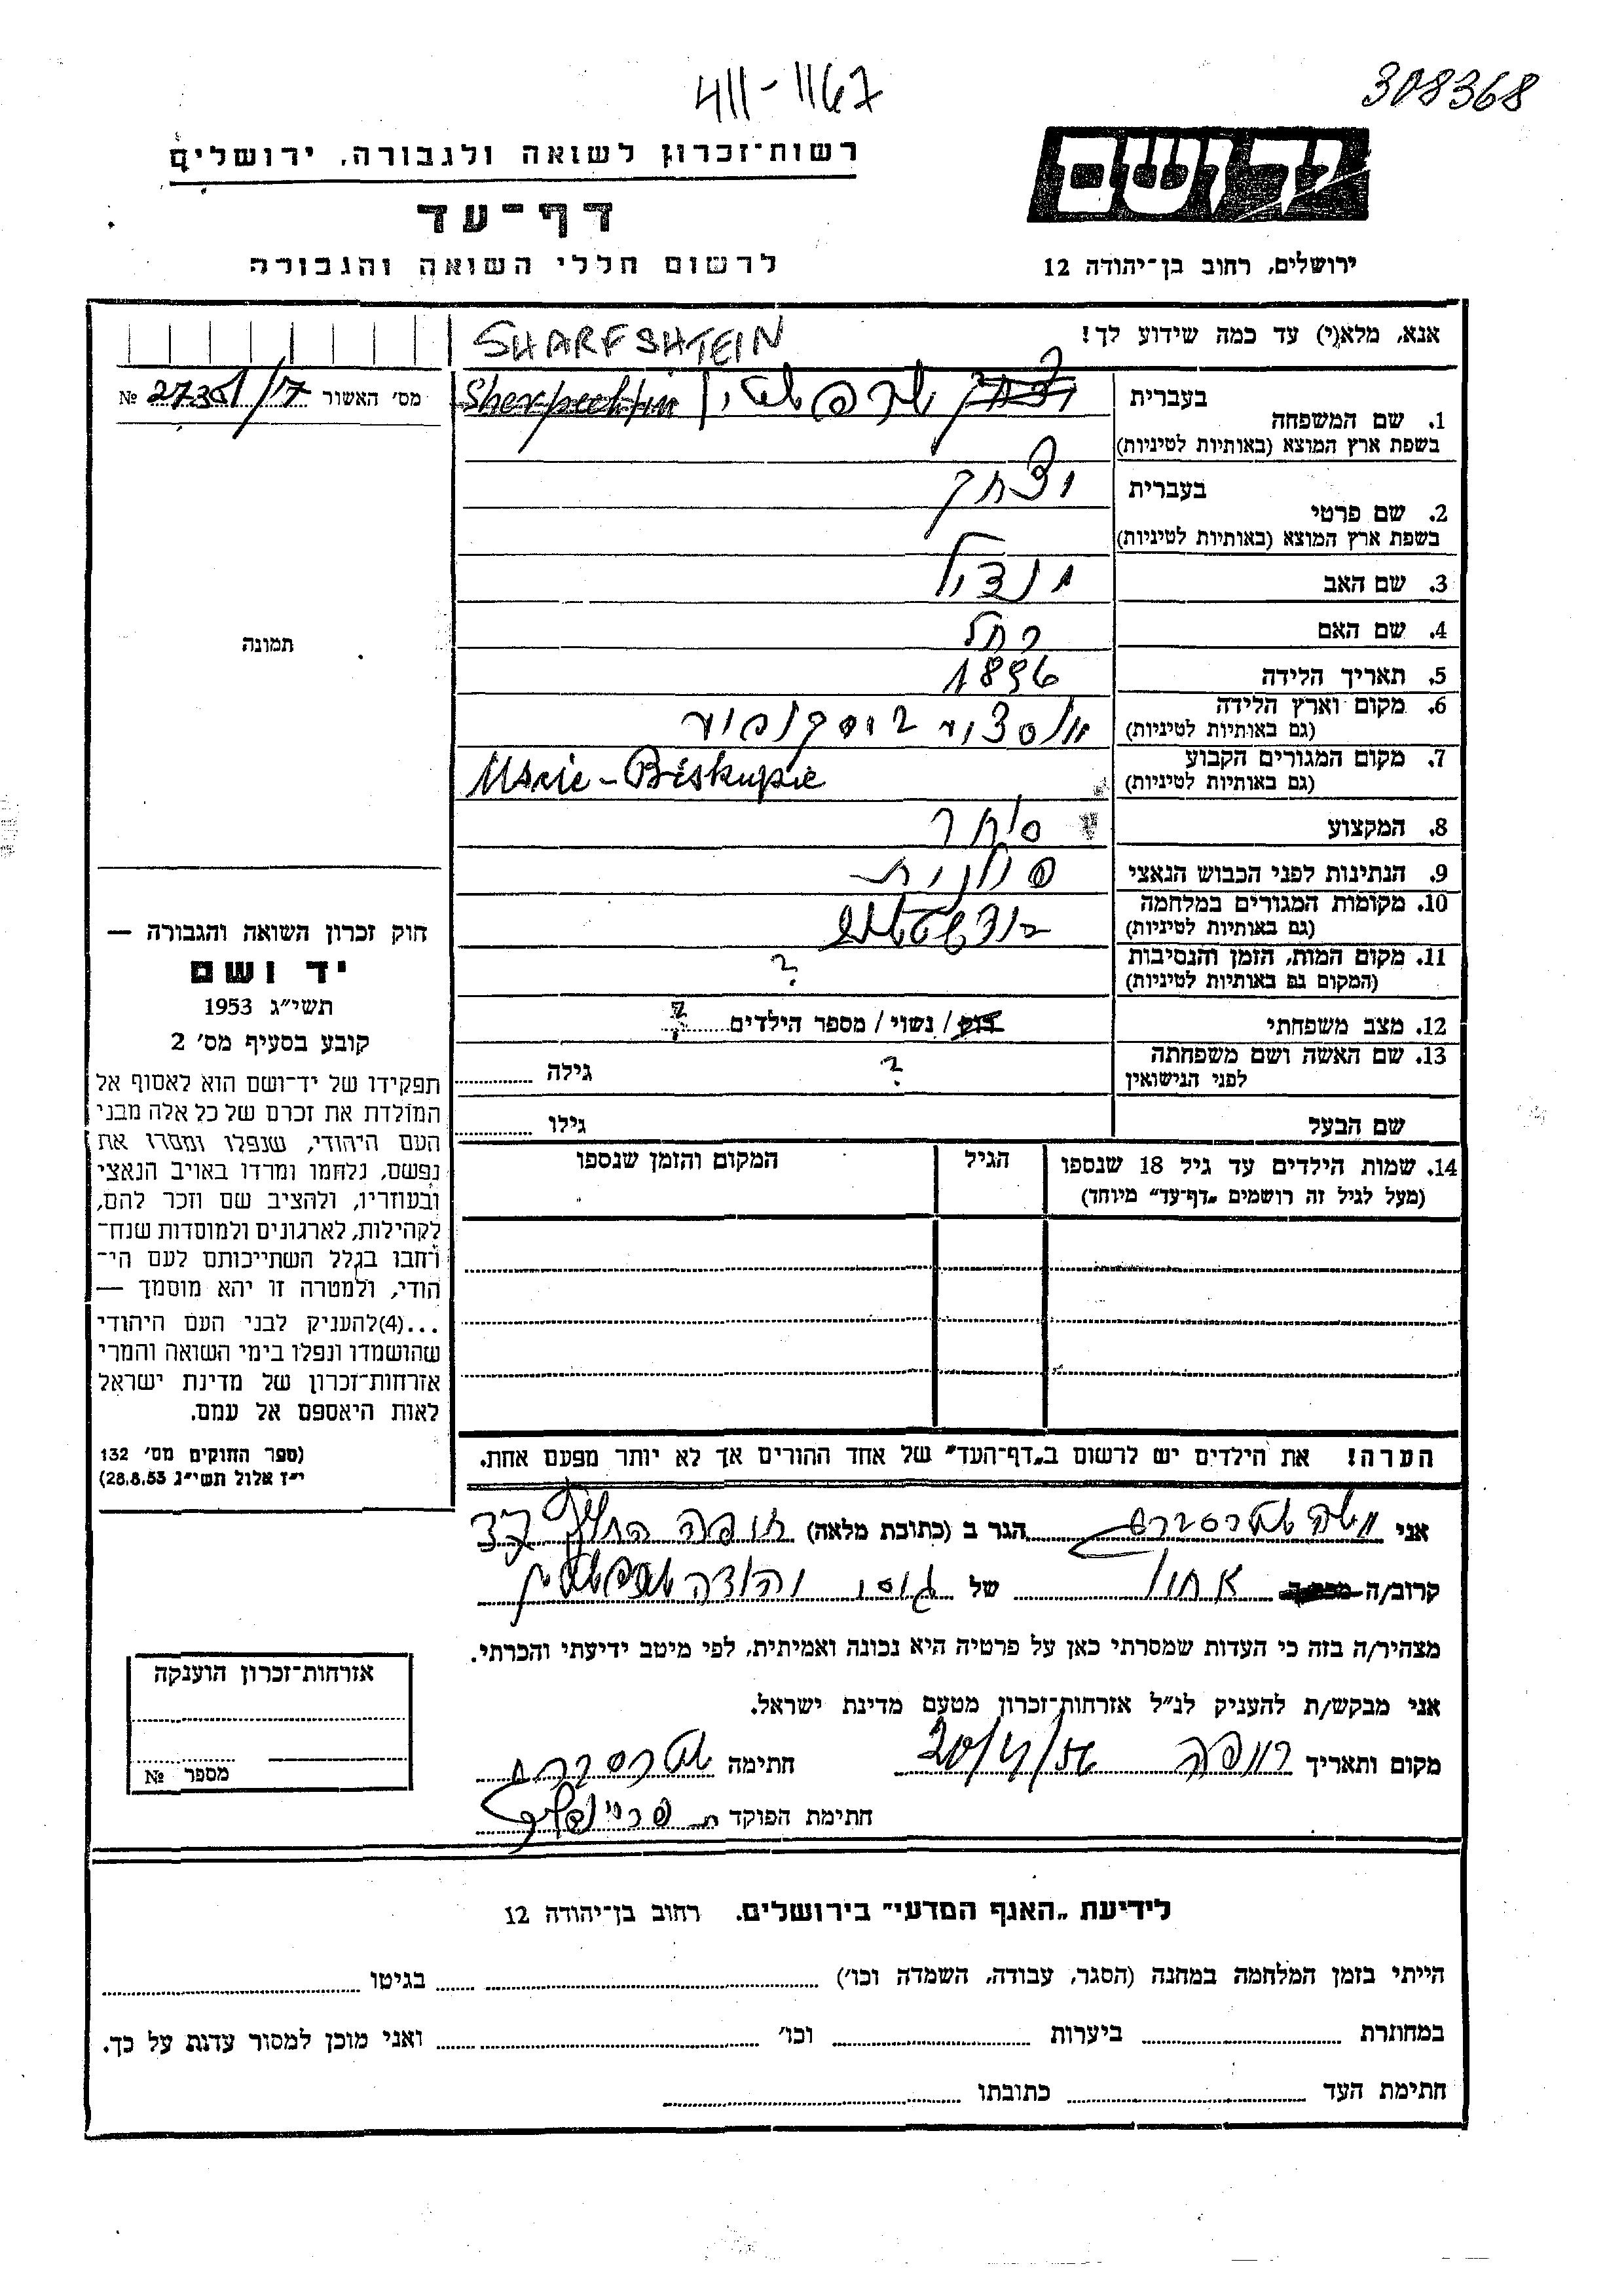 411-1167
308368
יד ושם
רשות־זכרון לשואה ולגבורה, ירושלים
דף־עד
לרשום חללי השואה והגבורה
ירושלים, רחוב בן־יהודה 12
אנא, מלא(י) עד כמה שידוע לך!
SHARFSHTEIN
מס׳ האשור № 27351/17
1. שם המשפחה
בעברית
שרפשטין
בשפת ארץ המוצא (באותיות לטיניות)
2. שם פרטי
בעברית יצחק
בשפת ארץ המוצא (באותיות לטיניות)
3. שם האב
4. שם האם רחל
5. תאריך הלידה 1896
6. מקום וארץ הלידה
(גם באותיות לטיניות)
7. מקום המגורים הקבוע
(גם באותיות לטיניות)
8. המקצוע סוחר
9. הנתינות לפני הכבוש הנאצי פולנית
10. מקומות המגורים במלחמה
(גם באותיות לטיניות)
11. מקום המות, הזמן והנסיבות ?
(המקום גם באותיות לטיניות)
12. מצב משפחתי רוק / נשוי / מספר הילדים ?
13. שם האשה ושם משפחתה ? גילה
לפני הנישואין
שם הבעל גילו
14. שמות הילדים עד גיל 18 שנספו הגיל המקום והזמן שנספו
(מעל לגיל זה רושמים „דף־עד״ מיוחד)
הערה! את הילדים יש לרשום ב„דף־העד״ של אחד ההורים אך לא יותר מפעם אחת.
תמונה
חוק זכרון השואה והגבורה —
יד ושם
תשי״ג 1953
קובע בסעיף מס׳ 2
תפקידו של יד־ושם הוא לאסוף אל
המולדת את זכרם של כל אלה מבני
העם היהודי, שנפלו ומסרו את
נפשם, נלחמו ומרדו באויב הנאצי
ובעוזריו, ולהציב שם וזכר להם,
לקהילות, לארגונים ולמוסדות שנח־
רחבו בגלל השתייכותם לעם הי־
הודי, ולמטרה זו יהא מוסמך —
...(4)להעניק לבני העם היהודי
שהושמדו ונפלו בימי השואה והמרי
אזרחות־זכרון של מדינת ישראל
לאות היאספם אל עמם.
(ספר החוקים מס׳ 132
י״ז אלול תשי״ג 28.8.53)
אני משה הגר ב (כתובת מלאה) חיפה
קרוב/ה של יהודה שרפשטין
מצהיר/ה בזה כי העדות שמסרתי כאן על פרטיה היא נכונה ואמיתית, לפי מיטב ידיעתי והכרתי.
אני מבקש/ת להעניק לנ״ל אזרחות־זכרון מטעם מדינת ישראל.
מקום ותאריך חיפה חתימה
חתימת הפוקד
אזרחות־זכרון הוענקה
מספר №
לידיעת „האגף המדעי״ בירושלים. רחוב בן־יהודה 12
הייתי בזמן המלחמה במחנה (הסגר, עבודה, השמדה וכו׳) בגיטו
במחתרת ביערות וכו׳ ואני מוכן למסור עדות על כך.
חתימת העד כתובתו